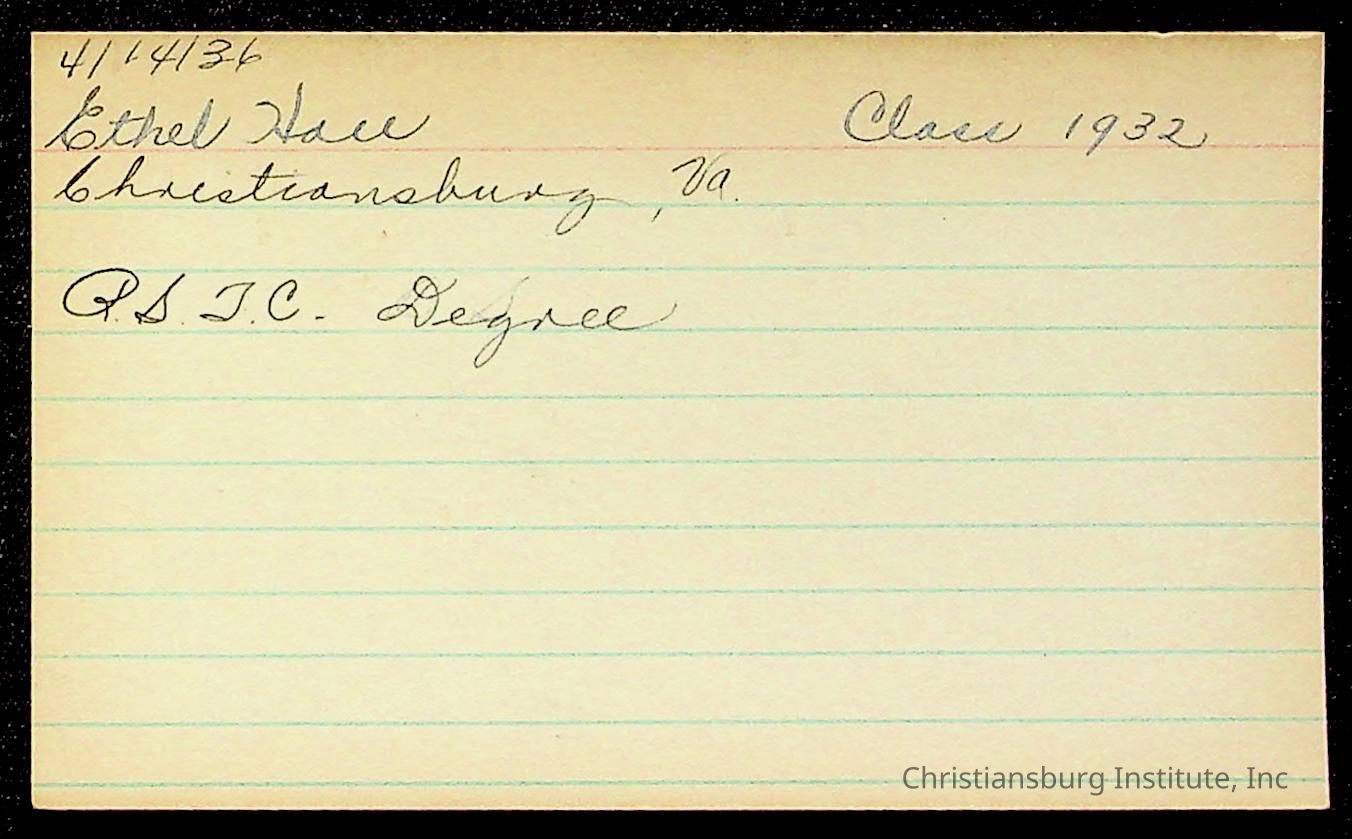 4/14/36
Ethel Hall Class 1932
Christiansburg, Va.
P.S.T.C. Degree
Christiansburg Institute, Inc